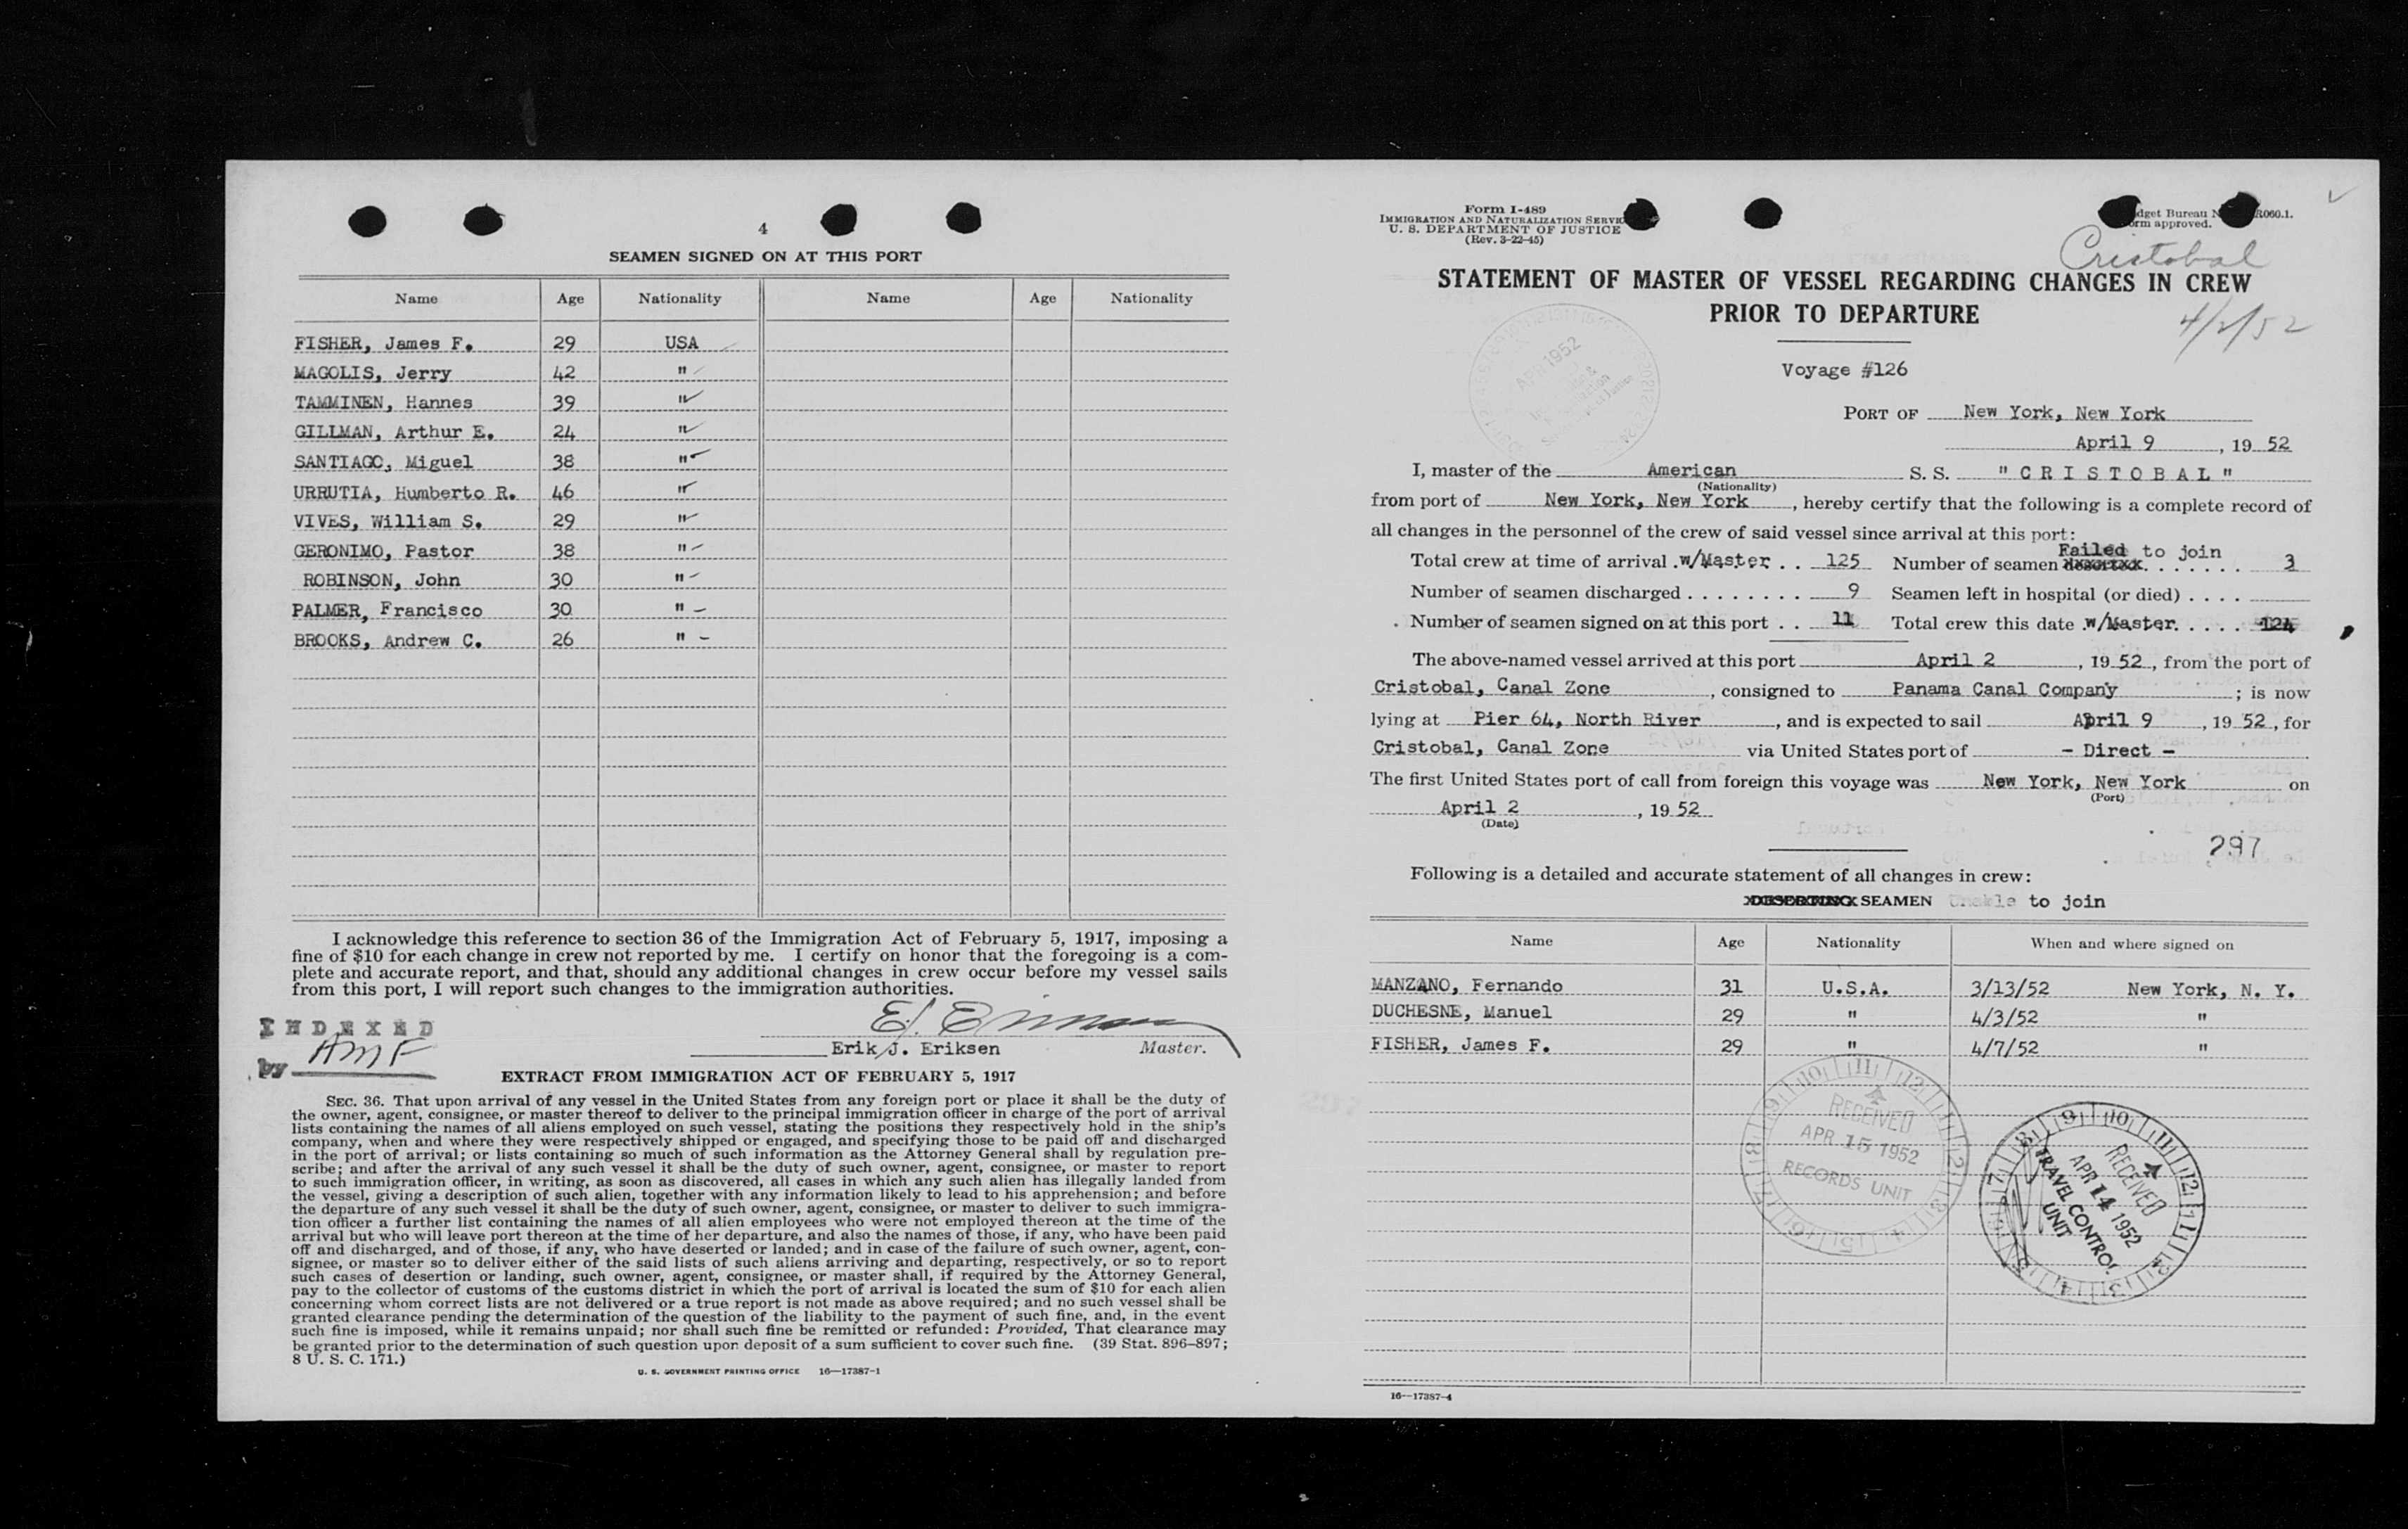 4
SEAMEN SIGNED ON AT THIS PORT
Name Age Nationality Name Age Nationality
FISHER, James F. 29 USA
MAGOLIS, Jerry 42 "
TAMMINEN, Hannes 39 "
GILLMAN, Arthur E. 24 "
SANTIAGO, Miguel 38 "
URRUTIA, Humberto R. 46 "
VIVES, William S. 29 "
GERONIMO, Pastor 38 "
ROBINSON, John 30 "
PALMER, Francisco 30 "
BROOKS, Andrew C. 26 "
I acknowledge this reference to section 36 of the Immigration Act of February 5, 1917, imposing a
fine of $10 for each change in crew not reported by me. I certify on honor that the foregoing is a com-
plete and accurate report, and that, should any additional changes in crew occur before my vessel sails
from this port, I will report such changes to the immigration authorities.
INDEXED
by AMF
Erik J. Eriksen Master.
EXTRACT FROM IMMIGRATION ACT OF FEBRUARY 5, 1917
SEC. 36. That upon arrival of any vessel in the United States from any foreign port or place it shall be the duty of
the owner, agent, consignee, or master thereof to deliver to the principal immigration officer in charge of the port of arrival
lists containing the names of all aliens employed on such vessel, stating the positions they respectively hold in the ship's
company, when and where they were respectively shipped or engaged, and specifying those to be paid off and discharged
in the port of arrival; or lists containing so much of such information as the Attorney General shall by regulation pre-
scribe; and after the arrival of any such vessel it shall be the duty of such owner, agent, consignee, or master to report
to such immigration officer, in writing, as soon as discovered, all cases in which any such alien has illegally landed from
the vessel, giving a description of such alien, together with any information likely to lead to his apprehension; and before
the departure of any such vessel it shall be the duty of such owner, agent, consignee, or master to deliver to such immigra-
tion officer a further list containing the names of all alien employees who were not employed thereon at the time of the
arrival but who will leave port thereon at the time of her departure, and also the names of those, if any, who have been paid
off and discharged, and of those, if any, who have deserted or landed; and in case of the failure of such owner, agent, con-
signee, or master so to deliver either of the said lists of such aliens arriving and departing, respectively, or so to report
such cases of desertion or landing, such owner, agent, consignee, or master shall, if required by the Attorney General,
pay to the collector of customs of the customs district in which the port of arrival is located the sum of $10 for each alien
concerning whom correct lists are not delivered or a true report is not made as above required; and no such vessel shall be
granted clearance pending the determination of the question of the liability to the payment of such fine, and, in the event
such fine is imposed, while it remains unpaid; nor shall such fine be remitted or refunded: Provided, That clearance may
be granted prior to the determination of such question upon deposit of a sum sufficient to cover such fine. (39 Stat. 896–897;
8 U. S. C. 171.)
U. S. GOVERNMENT PRINTING OFFICE 16—17387-1
Form I-489
IMMIGRATION AND NATURALIZATION SERVIC
U. S. DEPARTMENT OF JUSTICE
(Rev. 3-22-45)
dget Bureau N R060.1.
orm approved.
Cristobal
STATEMENT OF MASTER OF VESSEL REGARDING CHANGES IN CREW
PRIOR TO DEPARTURE
4/2/52
APR 1952
Voyage #126
PORT OF New York, New York
April 9, 19 52
I, master of the American S. S. "CRISTOBAL"
(Nationality)
from port of New York, New York, hereby certify that the following is a complete record of
all changes in the personnel of the crew of said vessel since arrival at this port:
Failed to join
Total crew at time of arrival w/Master 125 Number of seamen deserted 3
Number of seamen discharged 9 Seamen left in hospital (or died)
Number of seamen signed on at this port 11 Total crew this date w/Master 124
The above-named vessel arrived at this port April 2, 19 52, from the port of
Cristobal, Canal Zone, consigned to Panama Canal Company; is now
lying at Pier 64, North River, and is expected to sail April 9, 19 52, for
Cristobal, Canal Zone via United States port of - Direct -
The first United States port of call from foreign this voyage was New York, New York on
(Port)
April 2, 19 52
(Date)
297
Following is a detailed and accurate statement of all changes in crew:
DESERTING SEAMEN Unable to join
Name Age Nationality When and where signed on
MANZANO, Fernando 31 U.S.A. 3/13/52 New York, N. Y.
DUCHESNE, Manuel 29 " 4/3/52 "
FISHER, James F. 29 " 4/7/52 "
RECEIVED
APR 15 1952
RECORDS UNIT
RECEIVED
APR 14 1952
TRAVEL CONTROL
UNIT
16—17387-4